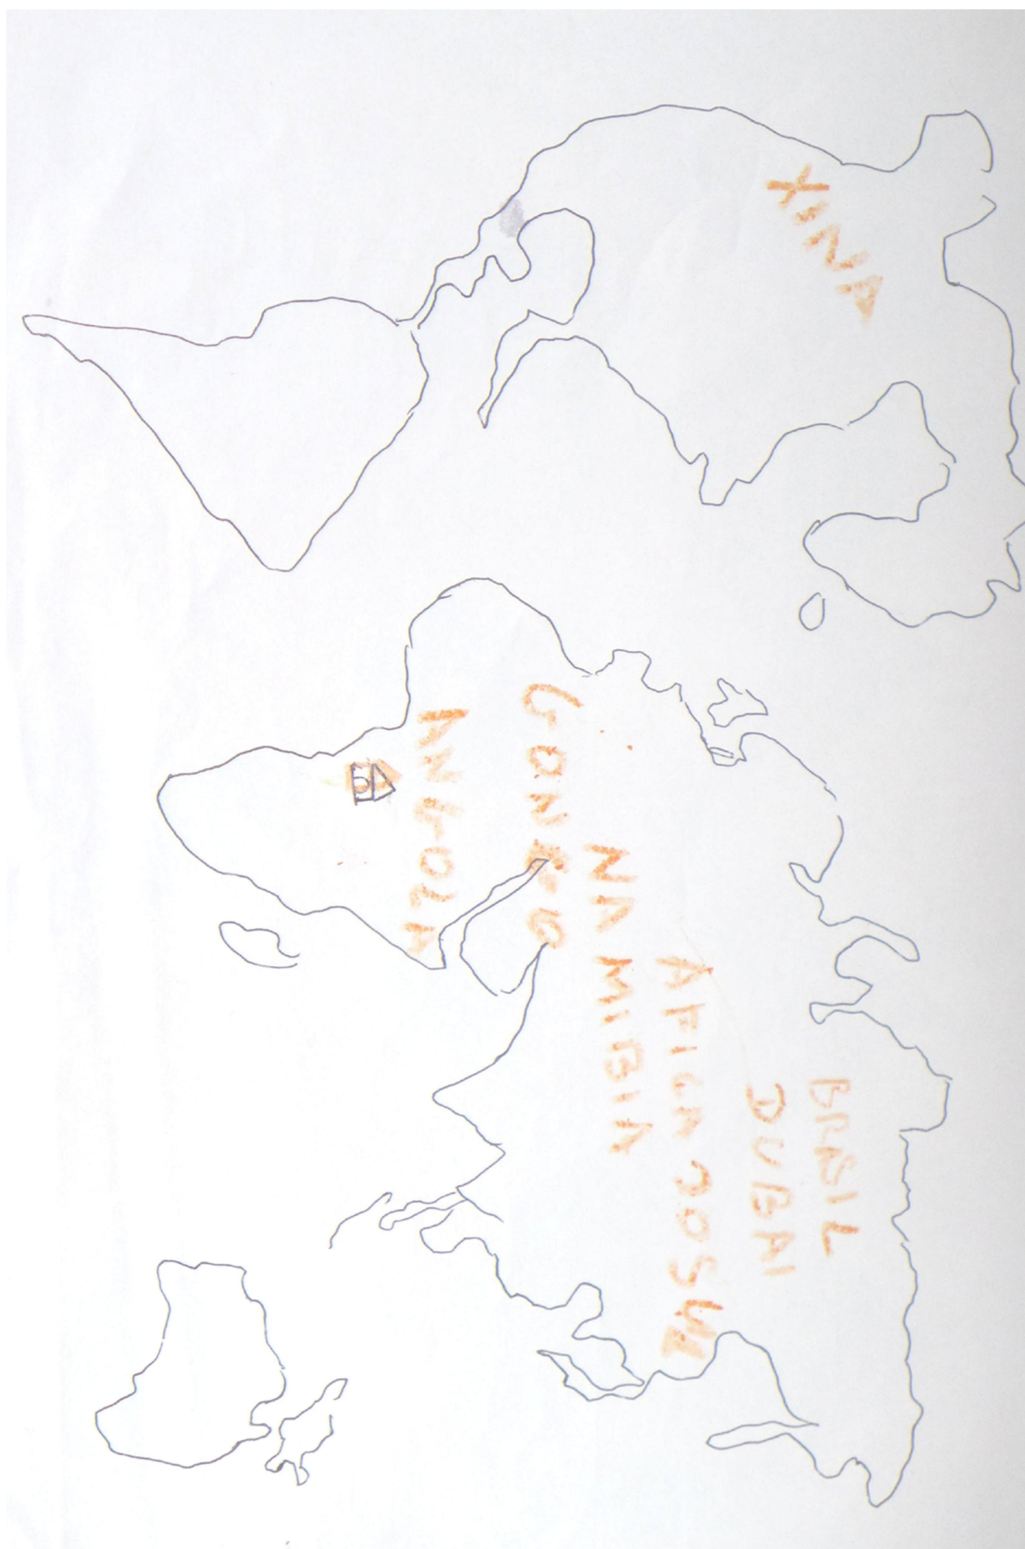 XINA
BRASIL
DUBAI
AFICA DOSUL
NAMIBIA
GONGO
ANGOLA